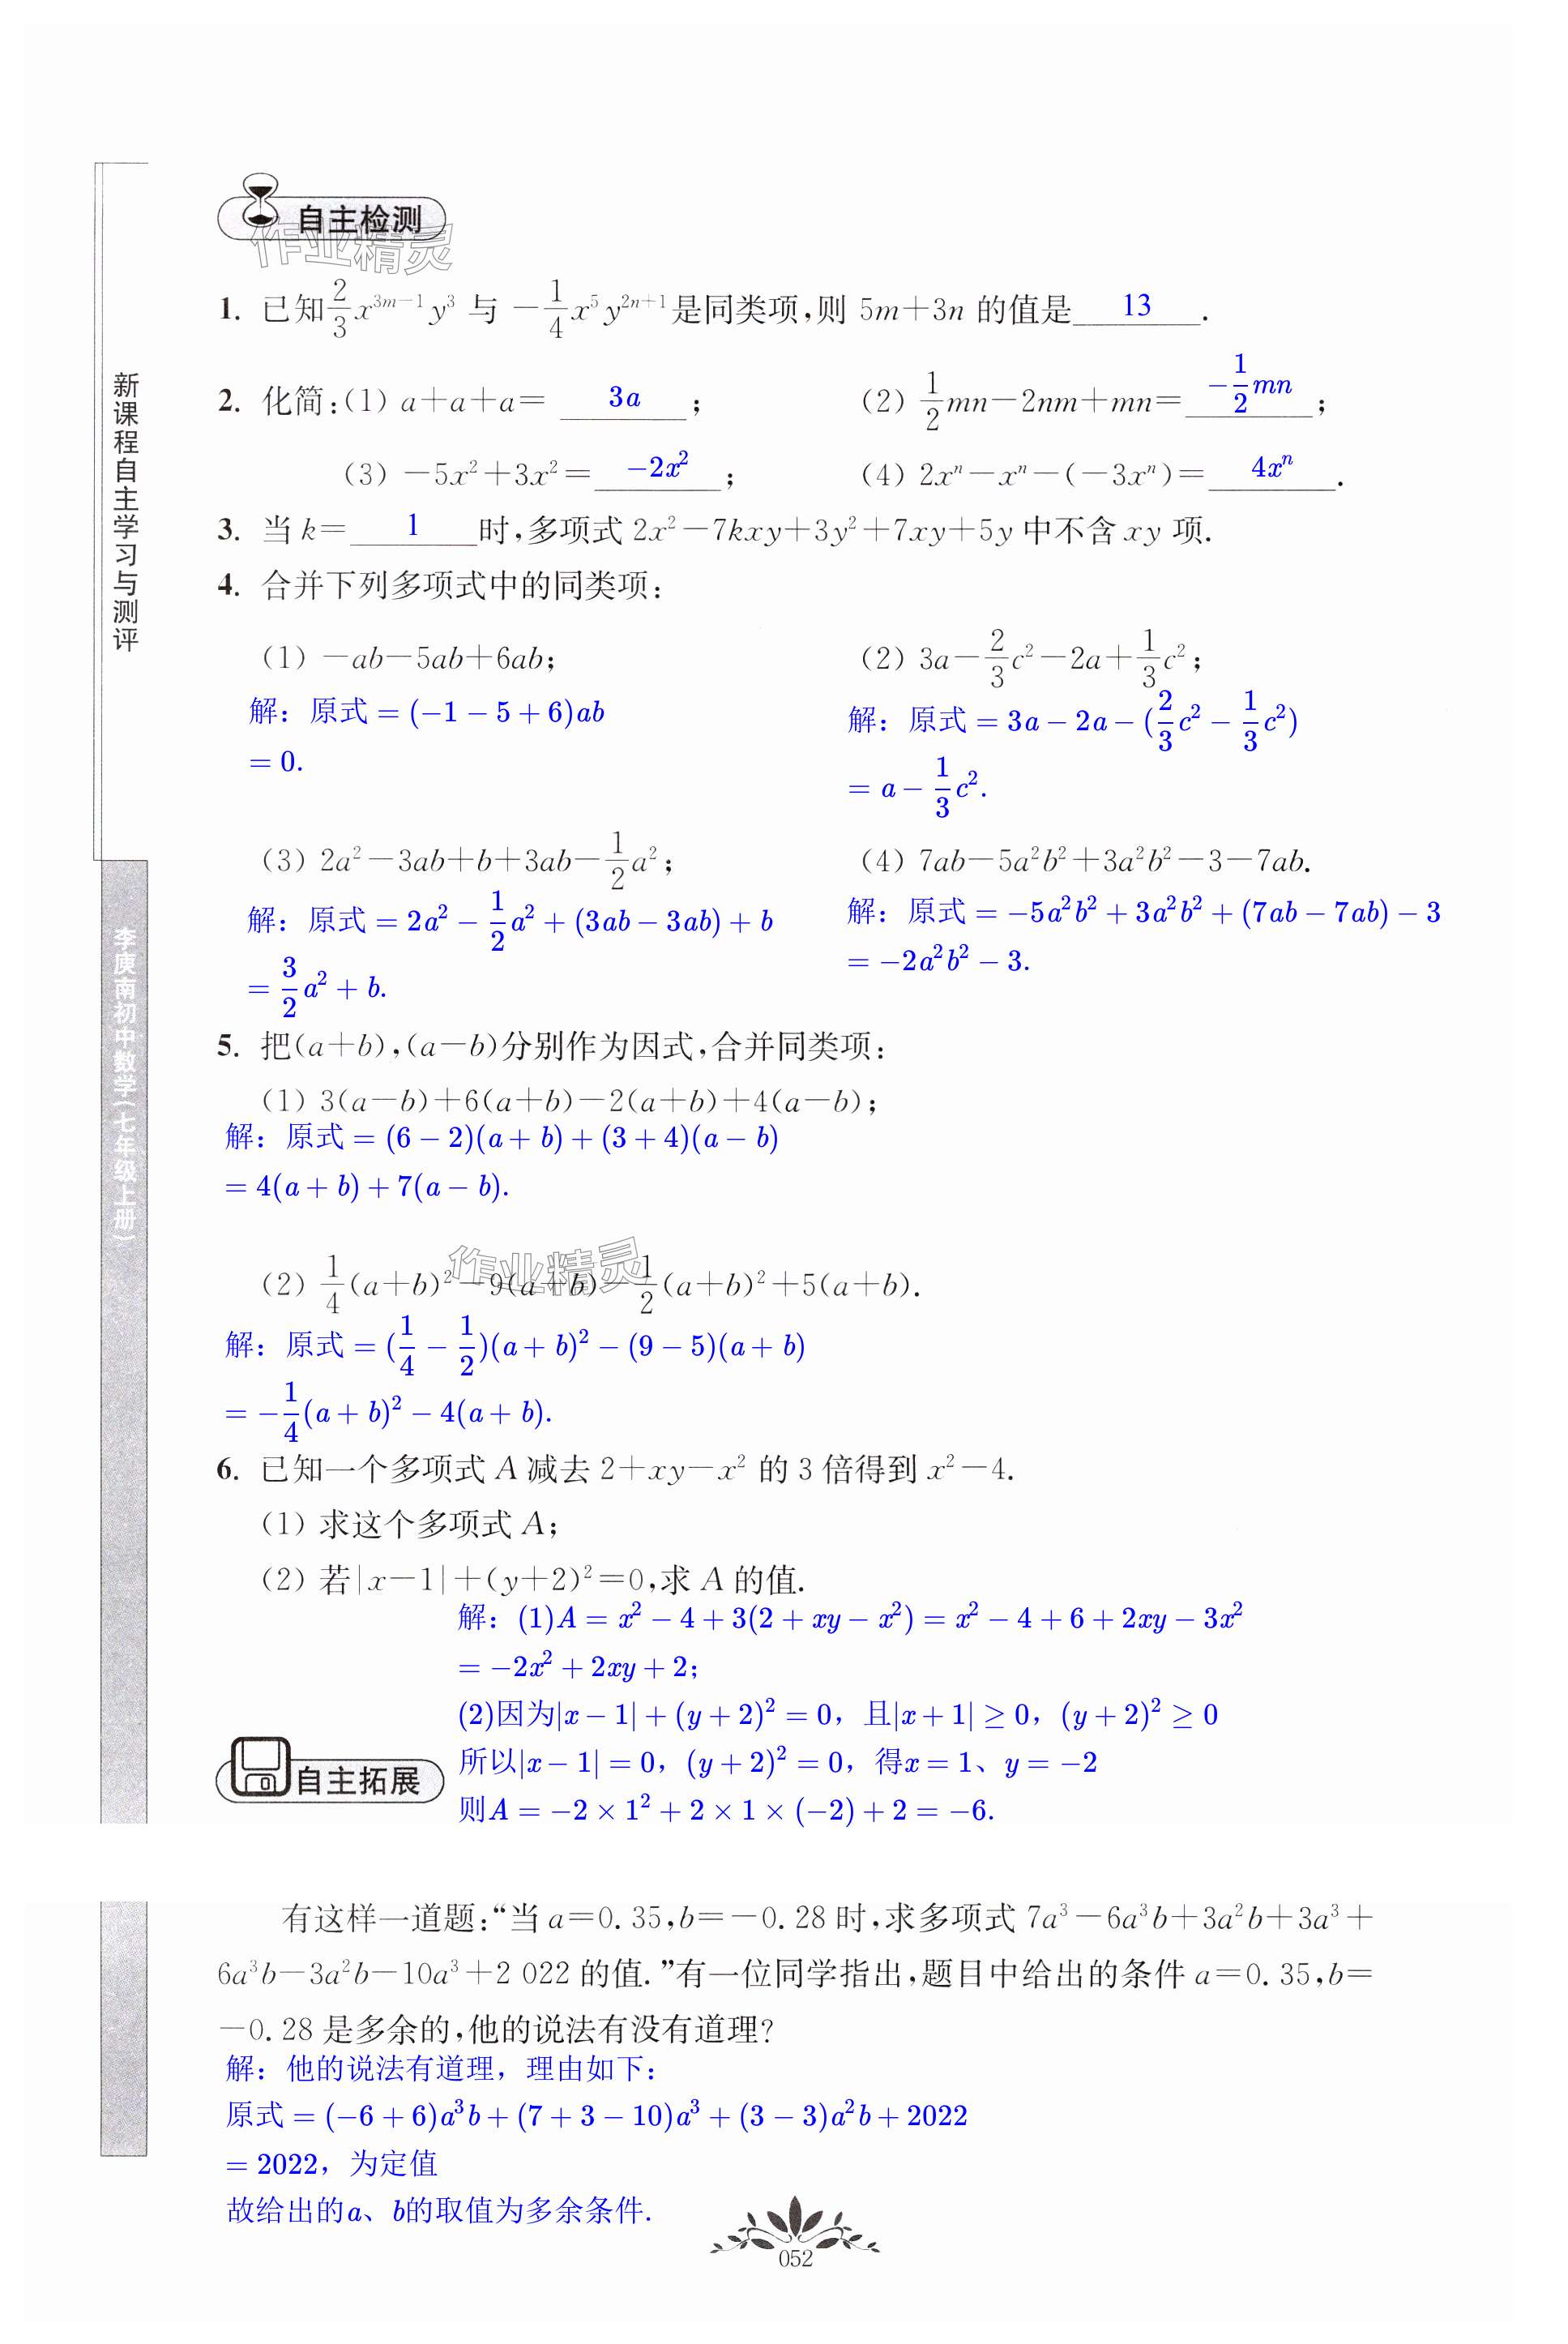 自主检测
作业精灵
1. 已知\frac{2}{3}x^{3m-1}y^{3} 与 -\frac{1}{4}x^{5}y^{2n+1}是同类项,则 5m+3n 的值是 13 .
2. 化简:(1) a+a+a= 3a ; (2) \frac{1}{2}mn-2nm+mn= -\frac{1}{2}mn ;
(3) -5x²+3x²= -2x² ; (4) 2xⁿ-xⁿ-(-3xⁿ)= 4xⁿ .
3. 当 k= 1 时,多项式 2x²-7kxy+3y²+7xy+5y 中不含 xy 项.
4. 合并下列多项式中的同类项:
(1) -ab-5ab+6ab; (2) 3a-\frac{2}{3}c²-2a+\frac{1}{3}c²;
解：原式 = (-1-5+6)ab
= 0.
解：原式 = 3a-2a-(\frac{2}{3}c²-\frac{1}{3}c²)
= a-\frac{1}{3}c².
(3) 2a²-3ab+b+3ab-\frac{1}{2}a²; (4) 7ab-5a²b²+3a²b²-3-7ab.
解：原式 = 2a²-\frac{1}{2}a²+(3ab-3ab)+b
= \frac{3}{2}a²+b.
解：原式 = -5a²b²+3a²b²+(7ab-7ab)-3
= -2a²b²-3.
5. 把(a+b),(a-b)分别作为因式,合并同类项:
(1) 3(a-b)+6(a+b)-2(a+b)+4(a-b);
解：原式 = (6-2)(a+b)+(3+4)(a-b)
= 4(a+b)+7(a-b).
作业精灵
(2) \frac{1}{4}(a+b)²-9(a+b)-\frac{1}{2}(a+b)²+5(a+b).
解：原式 = (\frac{1}{4}-\frac{1}{2})(a+b)²-(9-5)(a+b)
= -\frac{1}{4}(a+b)²-4(a+b).
6. 已知一个多项式 A 减去 2+xy-x² 的 3 倍得到 x²-4.
(1) 求这个多项式 A;
(2) 若|x-1|+(y+2)²=0,求 A 的值.
解：(1)A = x²-4+3(2+xy-x²) = x²-4+6+2xy-3x²
= -2x²+2xy+2;
(2)因为|x-1|+(y+2)²=0，且|x+1| ≥ 0，(y+2)² ≥ 0
所以|x-1|=0，(y+2)²=0，得x=1、y=-2
则A = -2×1²+2×1×(-2)+2 = -6.
自主拓展
有这样一道题:“当 a=0.35,b=-0.28 时,求多项式 7a³-6a³b+3a²b+3a³+
6a³b-3a²b-10a³+2 022 的值.”有一位同学指出,题目中给出的条件 a=0.35,b=
-0.28 是多余的,他的说法有没有道理?
解：他的说法有道理，理由如下：
原式 = (-6+6)a³b+(7+3-10)a³+(3-3)a²b+2022
= 2022，为定值
故给出的a、b的取值为多余条件.
052
新课程自主学习与测评
李庾南初中数学(七年级上册)